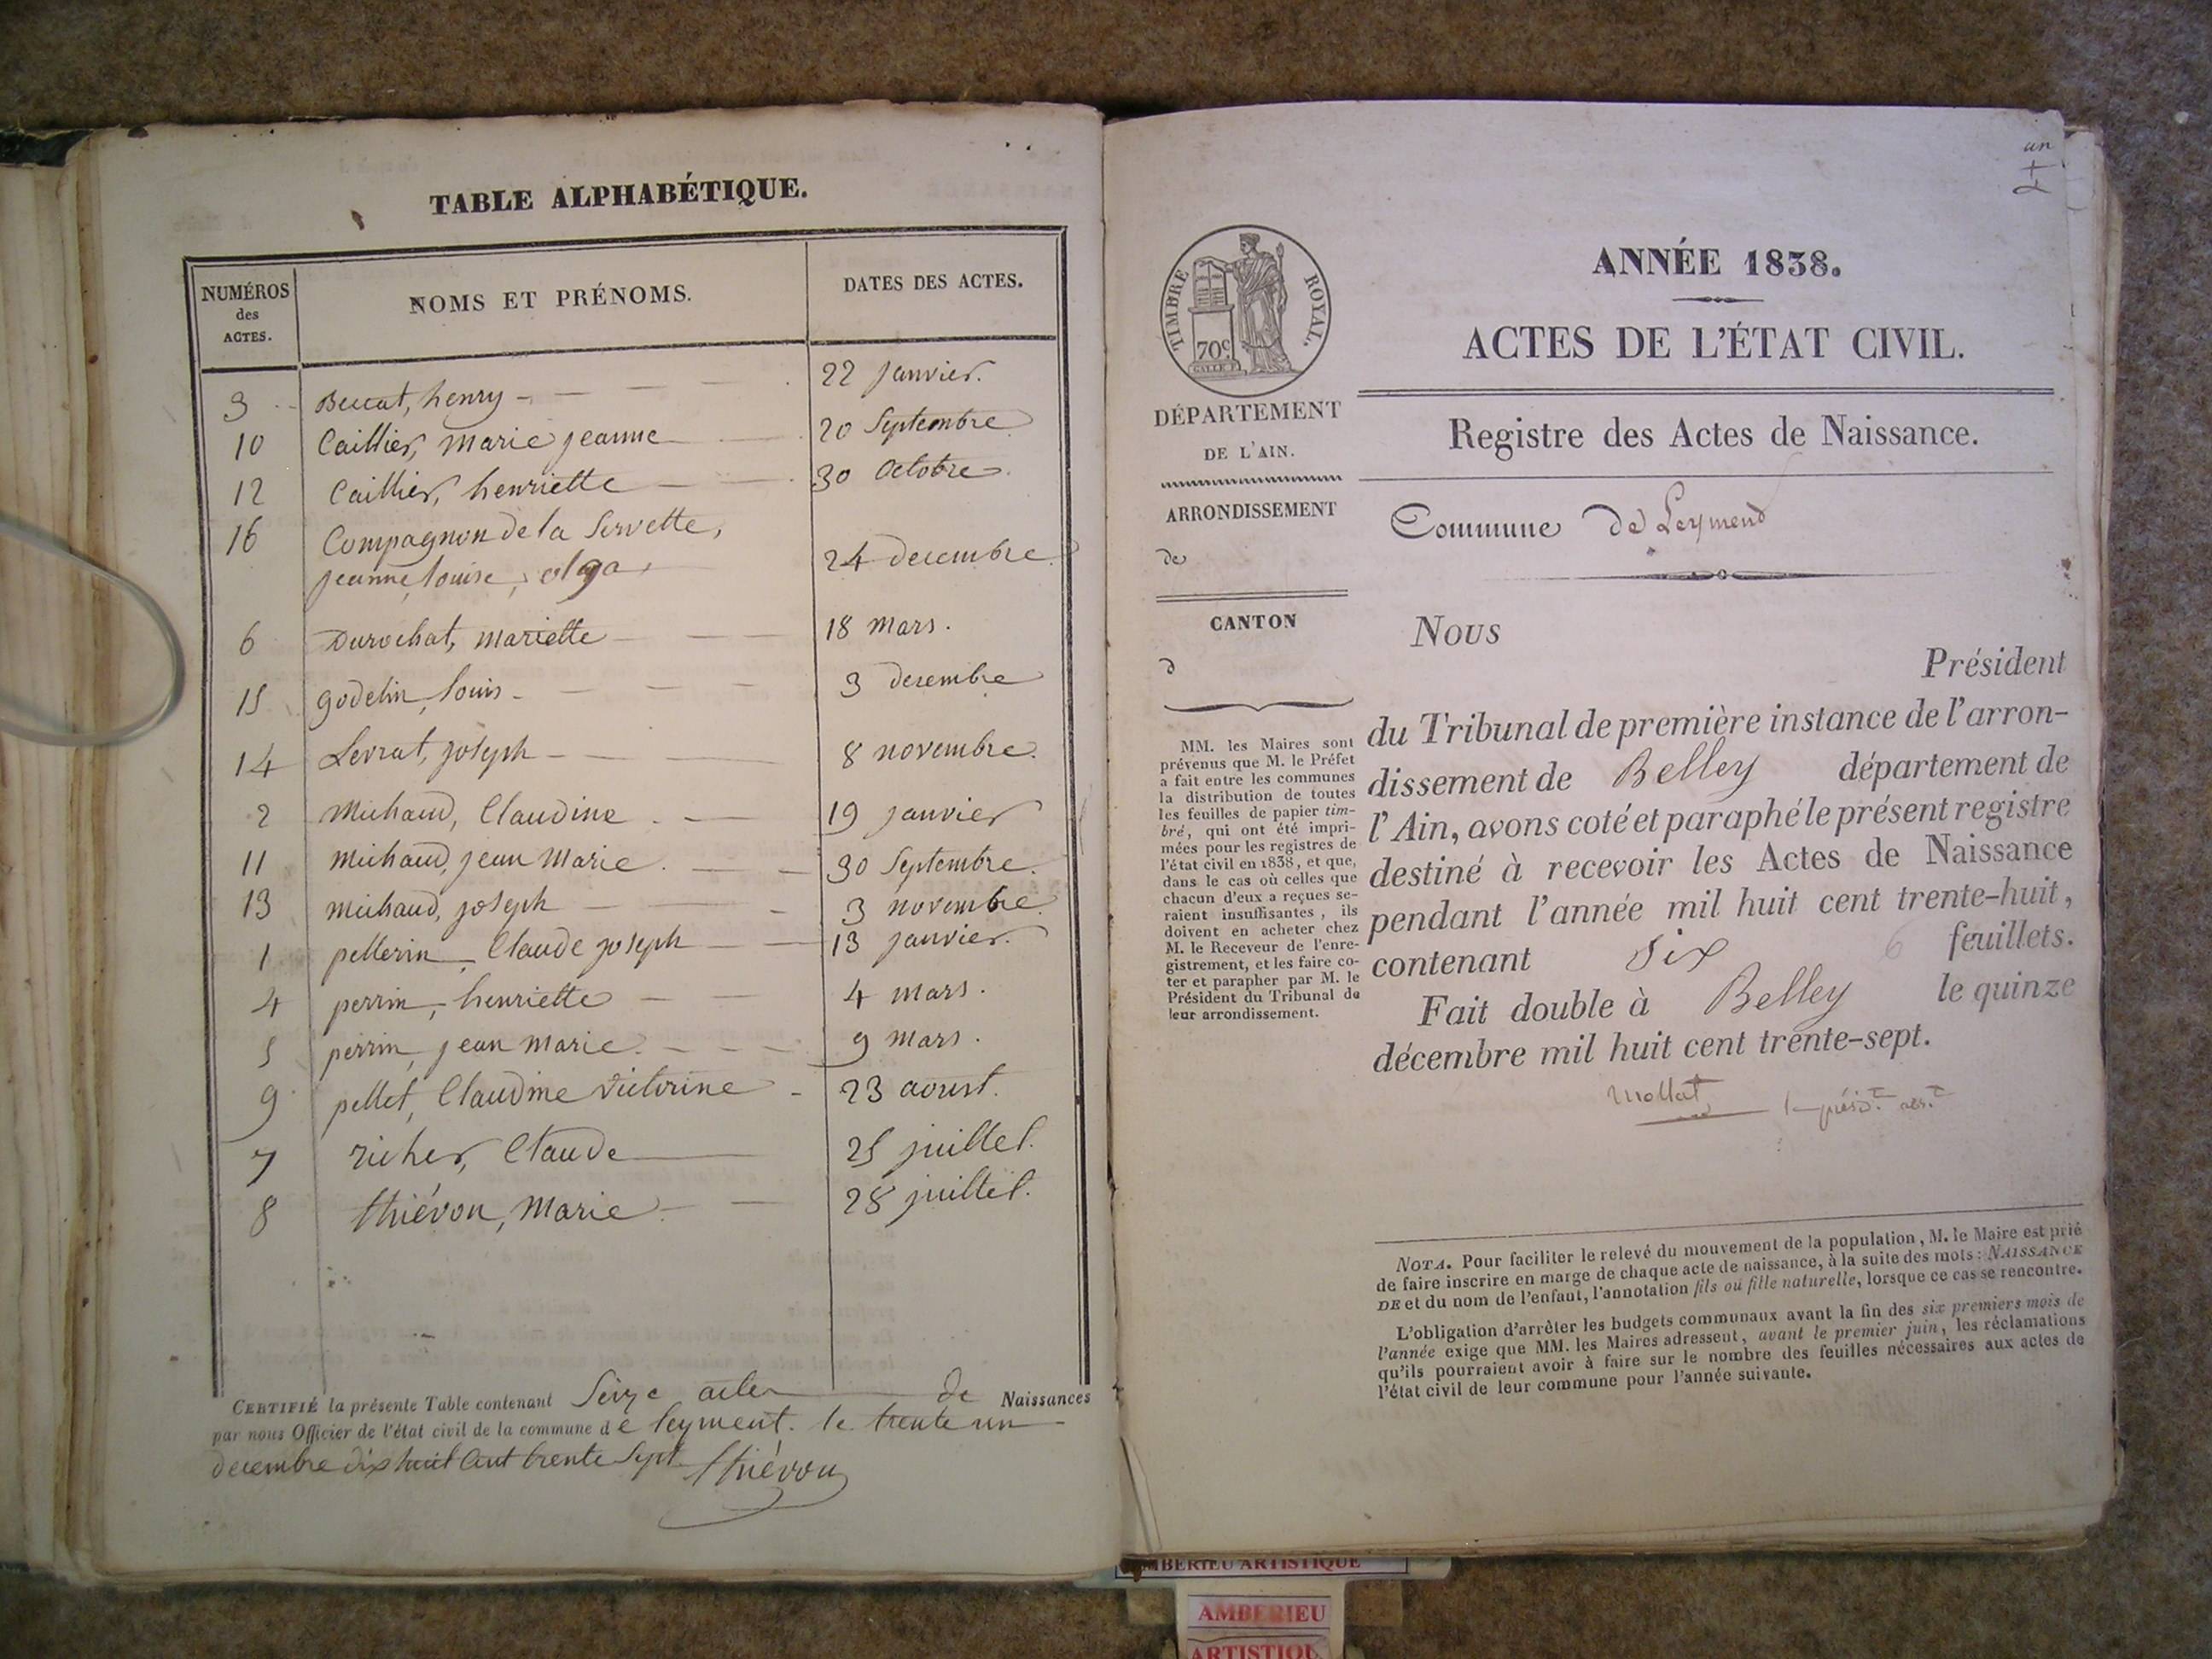 TABLE ALPHABÉTIQUE.
NUMÉROS des ACTES. NOMS ET PRÉNOMS. DATES DES ACTES.
3 Buccat, henry 22 janvier.
10 Caillier, marie jeanne 20 Septembre
12 Caillier, henriette 30 Octobre
16 Compagnon de la Servette,
jeanne, louise, olga, 24 decembre
6 Durochat, mariette 18 mars.
15 godelin, louis 3 decembre
14 Levrat, joseph 8 novembre.
2 Michaud, Claudine 19 janvier
11 Michaud, jean Marie 30 Septembre.
13 michaud, joseph 3 novembre
1 pellerin, Claude joseph 13 janvier.
4 perrin, henriette 4 mars.
5 perrin, jean marie 9 mars.
9 pellet, Claudine victorine 23 aoust.
7 richer, Claude 25 juillet.
8 thiévon, Marie 28 juillet.
CERTIFIÉ la présente Table contenant Seize actes de Naissances
par nous Officier de l'état civil de la commune de leyment. le trente un
decembre dix huit Cent trente Sept thiévon
un
ANNÉE 1838.
ACTES DE L'ÉTAT CIVIL.
Registre des Actes de Naissance.
Commune de Leymend
TIMBRE ROYAL.
70c
DÉPARTEMENT
DE L'AIN.
ARRONDISSEMENT
de
CANTON
d
MM. les Maires sont
prévenus que M. le Préfet
a fait entre les communes
la distribution de toutes
les feuilles de papier tim-
bré, qui ont été impri-
mées pour les registres de
l'état civil en 1838, et que,
dans le cas où celles que
chacun d'eux a reçues se-
raient insuffisantes, ils
doivent en acheter chez
M. le Receveur de l'enre-
gistrement, et les faire co-
ter et parapher par M. le
Président du Tribunal de
leur arrondissement.
Nous
Président
du Tribunal de première instance de l'arron-
dissement de Belley département de
l'Ain, avons coté et paraphé le présent registre
destiné à recevoir les Actes de Naissance
pendant l'année mil huit cent trente-huit,
contenant six 6 feuillets.
Fait double à Belley le quinze
décembre mil huit cent trente-sept.
Mollat
NOTA. Pour faciliter le relevé du mouvement de la population, M. le Maire est prié
de faire inscrire en marge de chaque acte de naissance, à la suite des mots: NAISSANCE
DE et du nom de l'enfant, l'annotation fils ou fille naturelle, lorsque ce cas se rencontre.
L'obligation d'arrêter les budgets communaux avant la fin des six premiers mois de
l'année exige que MM. les Maires adressent, avant le premier juin, les réclamations
qu'ils pourraient avoir à faire sur le nombre des feuilles nécessaires aux actes de
l'état civil de leur commune pour l'année suivante.
AMBERIEU ARTISTIQUE
AMBERIEU
ARTISTIQU